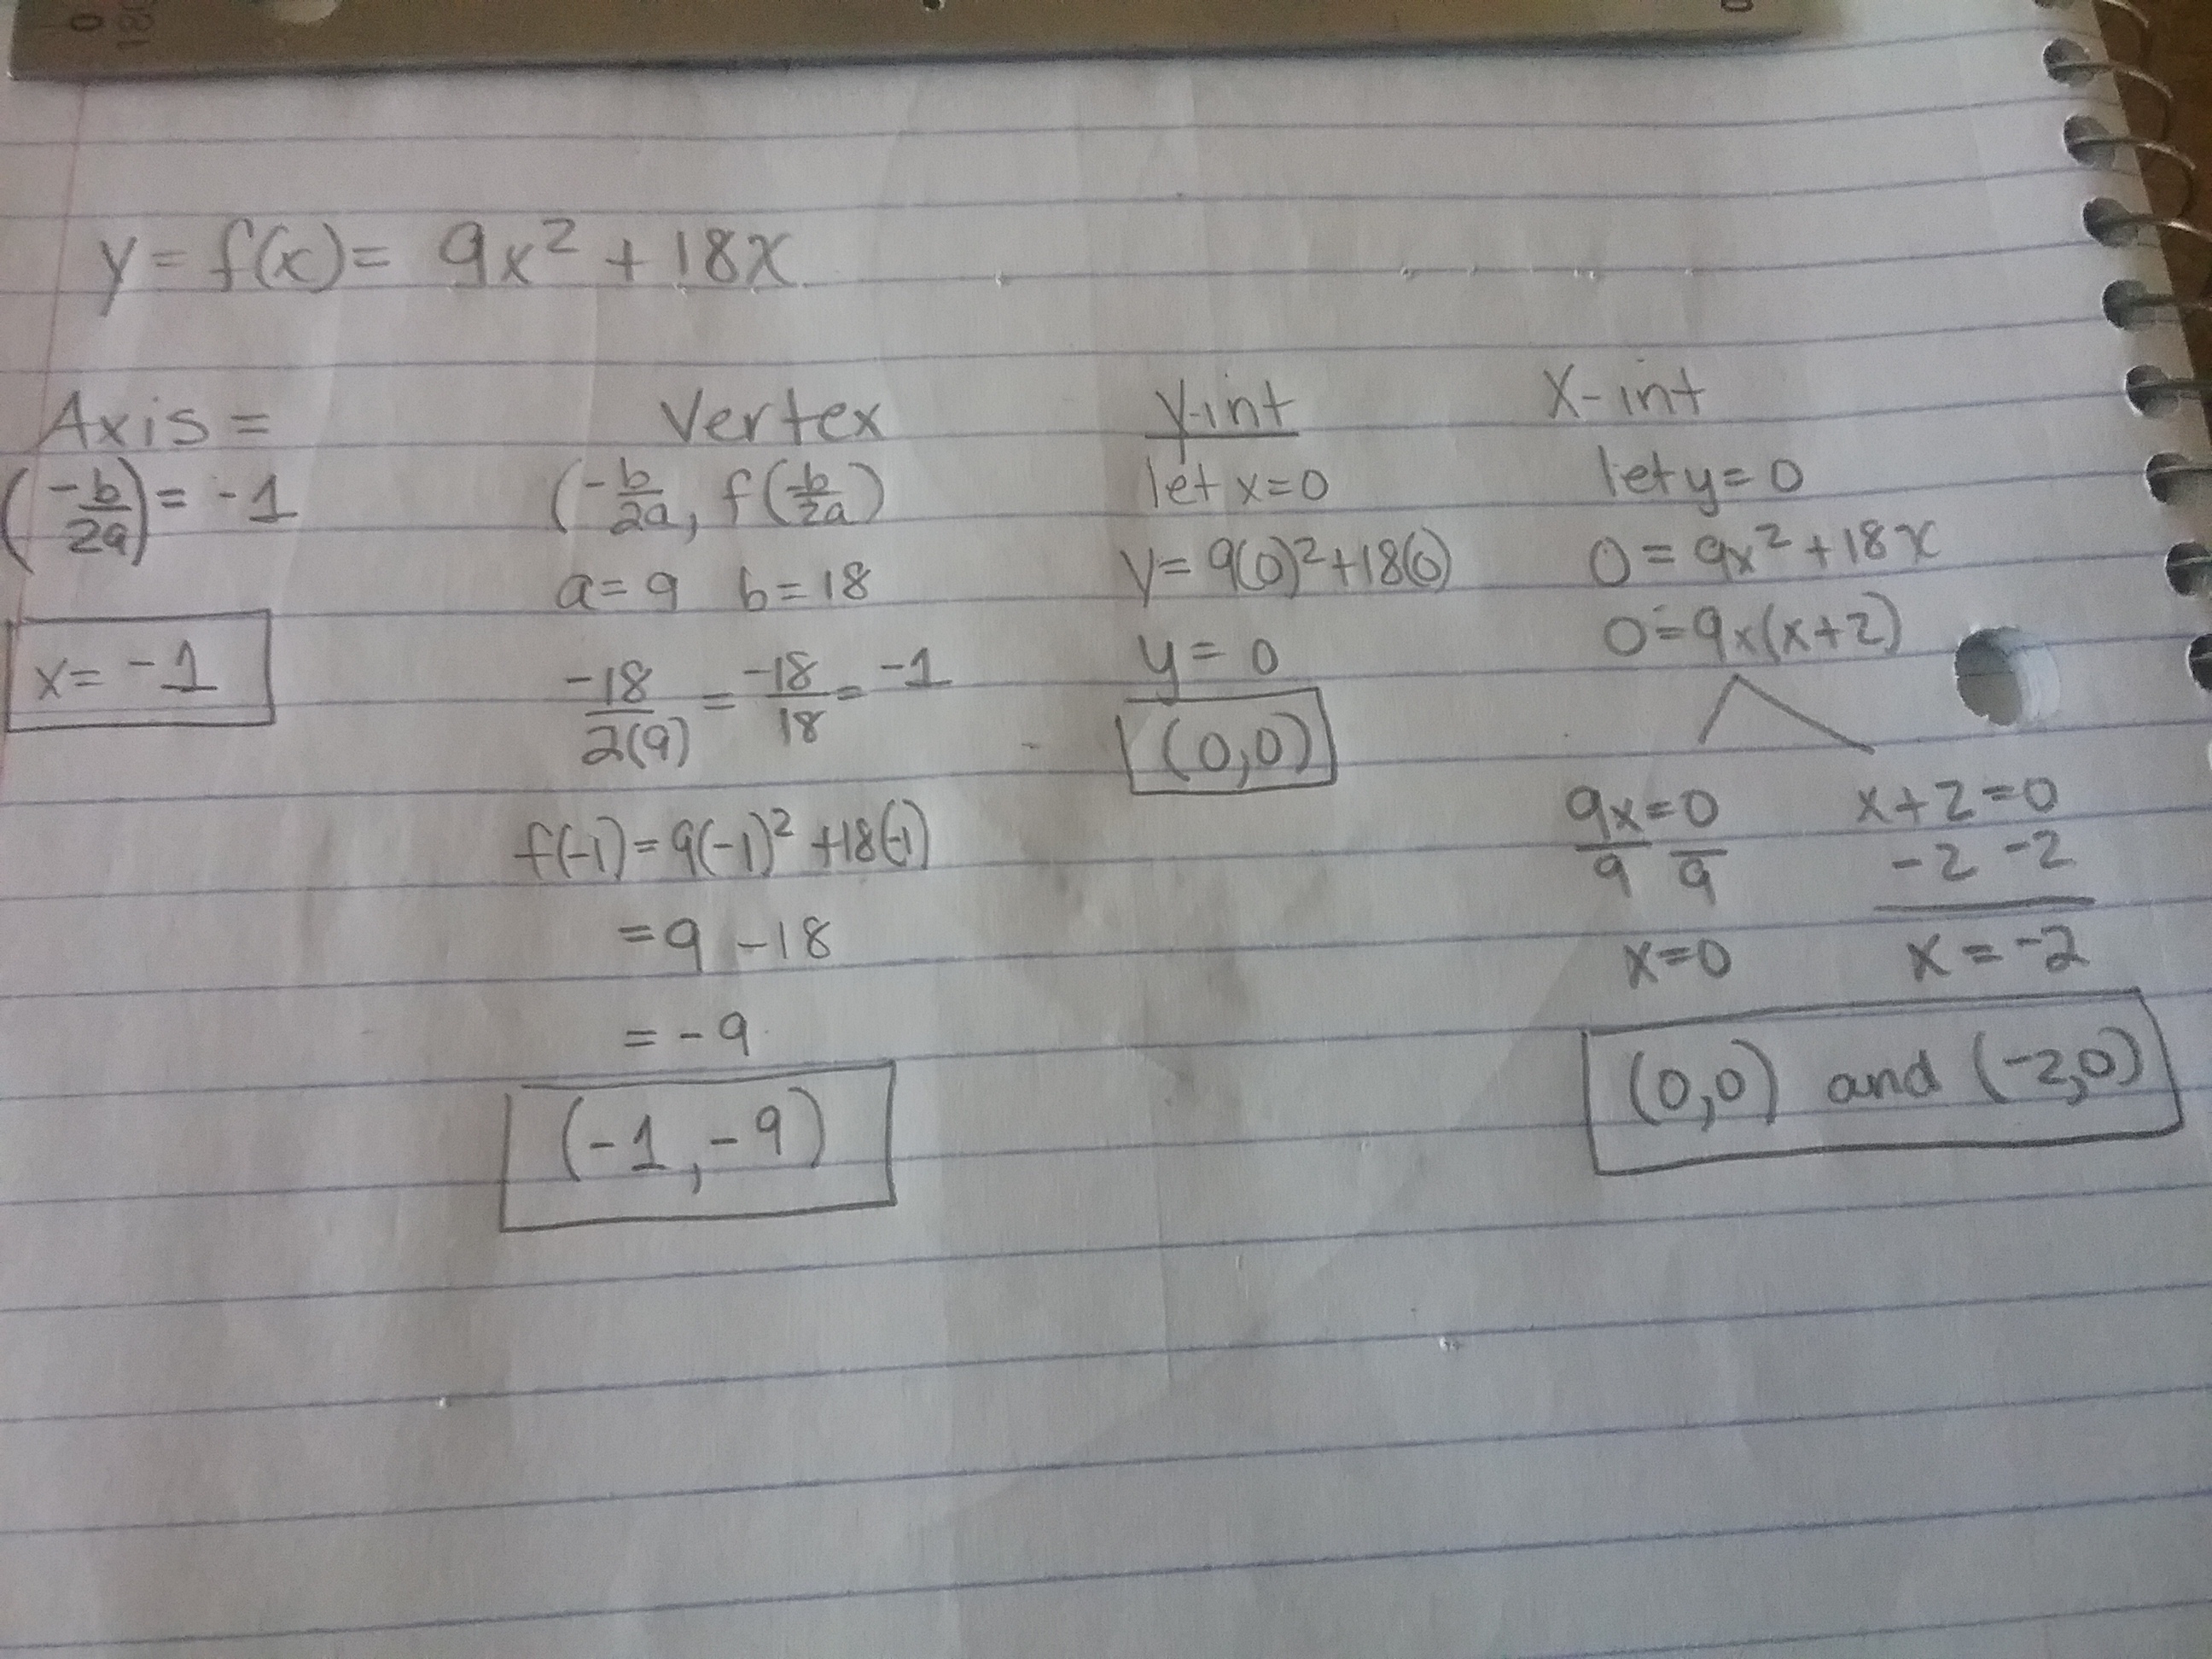 0
180
0
y = f(x) = 9x² + 18x
Axis =
(-b/2a) = -1
x = -1
Vertex
(-b/2a, f(-b/2a)
a = 9 b = 18
-18/2(9) = -18/18 = -1
f(-1) = 9(-1)² + 18(-1)
= 9 - 18
= -9
(-1, -9)
y-int
let x = 0
y = 9(0)² + 18(0)
y = 0
(0,0)
X-int
let y = 0
0 = 9x² + 18x
0 = 9x(x+2)
9x = 0 x + 2 = 0
9 9 -2 -2
x = 0 x = -2
(0,0) and (-2,0)